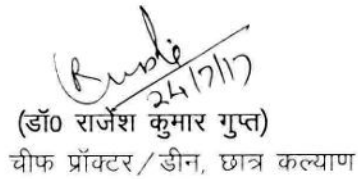 24/7/17
(डॉ0 राजेश कुमार गुप्त)
चीफ प्रॉक्टर/डीन, छात्र कल्याण